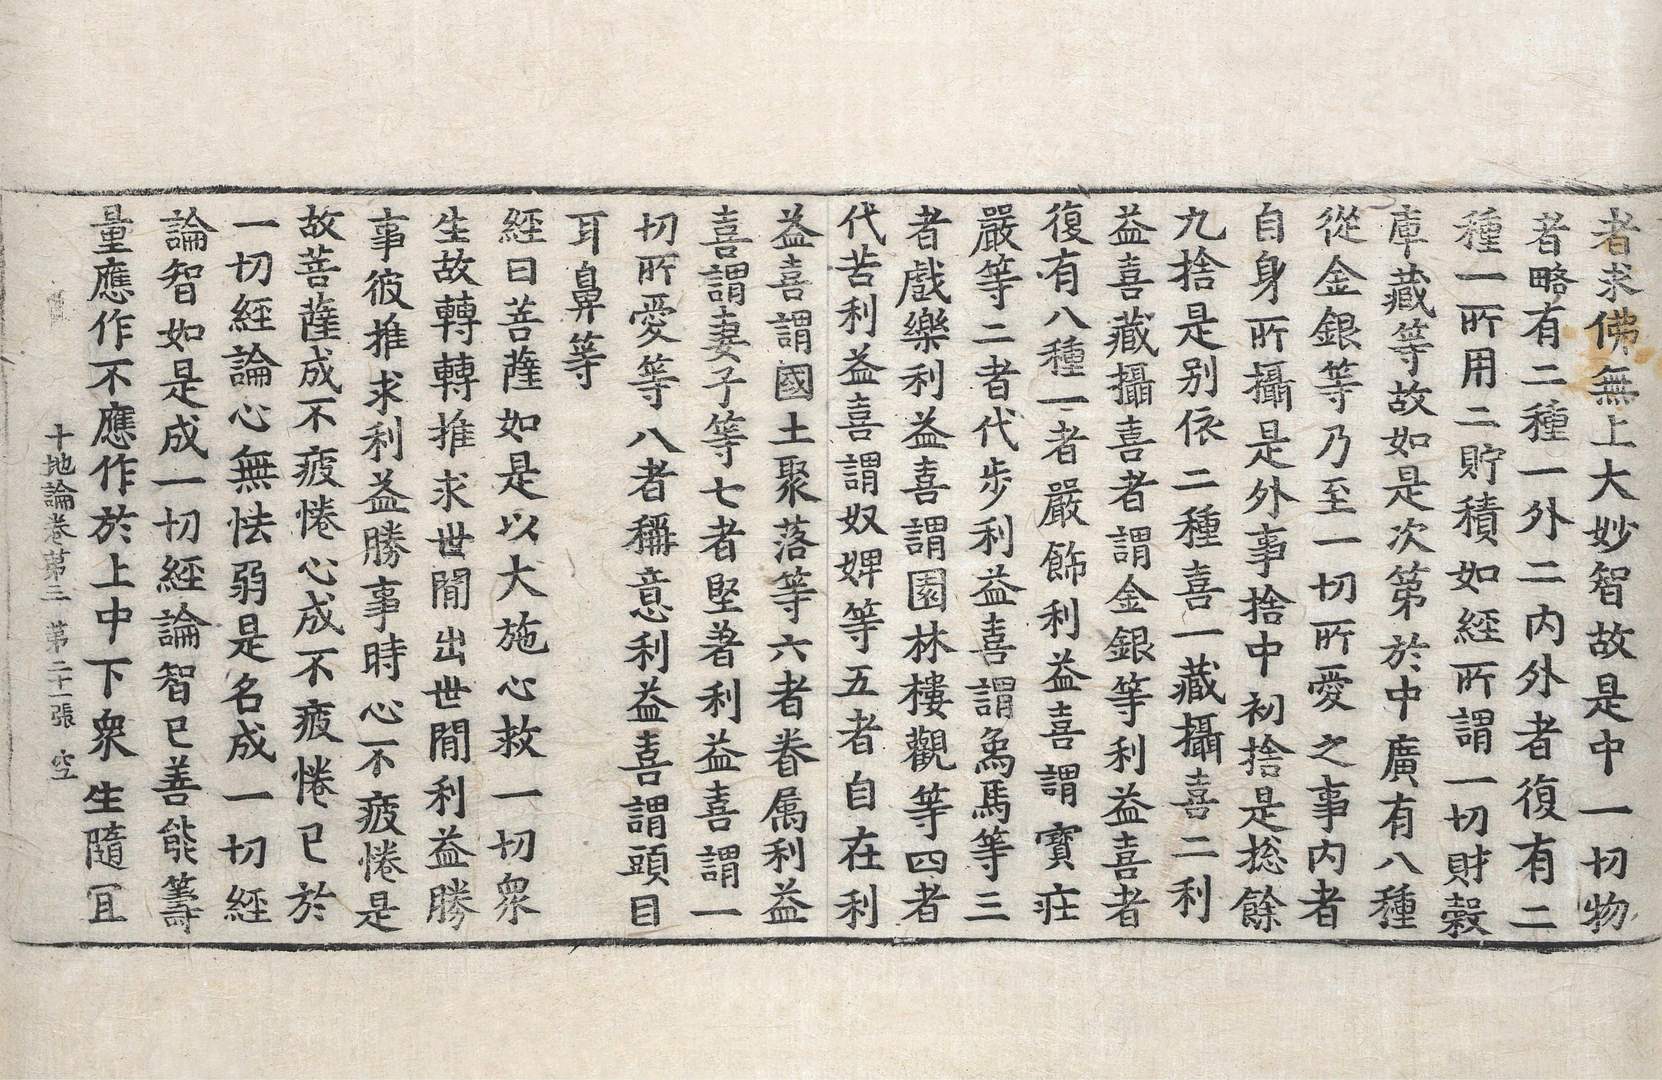 者求佛無上大妙智故是中一切物
者略有二種一外二内外者復有二
種一所用二貯積如經所謂一切財穀
庫藏等故如是次第於中廣有八種
從金銀等乃至一切所愛之事内者
自身所攝是外事捨中初捨是捴餘
九捨是别依二種喜一藏攝喜二利
益喜藏攝喜者謂金銀等利益喜者
復有八種一者嚴飾利益喜謂寶莊
嚴等二者代步利益喜謂象馬等三
者戲樂利益喜謂園林樓觀等四者
代苦利益喜謂奴婢等五者自在利
益喜謂國土聚落等六者眷属利益
喜謂妻子等七者堅著利益喜謂一
切所愛等八者稱意利益喜謂頭目
耳鼻等
經曰菩薩如是以大施心救一切衆
生故轉轉推求世間出世間利益勝
事彼推求利益勝事時心不疲惓是
故菩薩成不疲惓心成不疲惓已於
一切經論心無怯弱是名成一切經
論智如是成一切經論智已善能籌
量應作不應作於上中下衆生隨冝
十地論卷第三 第二十一張 空